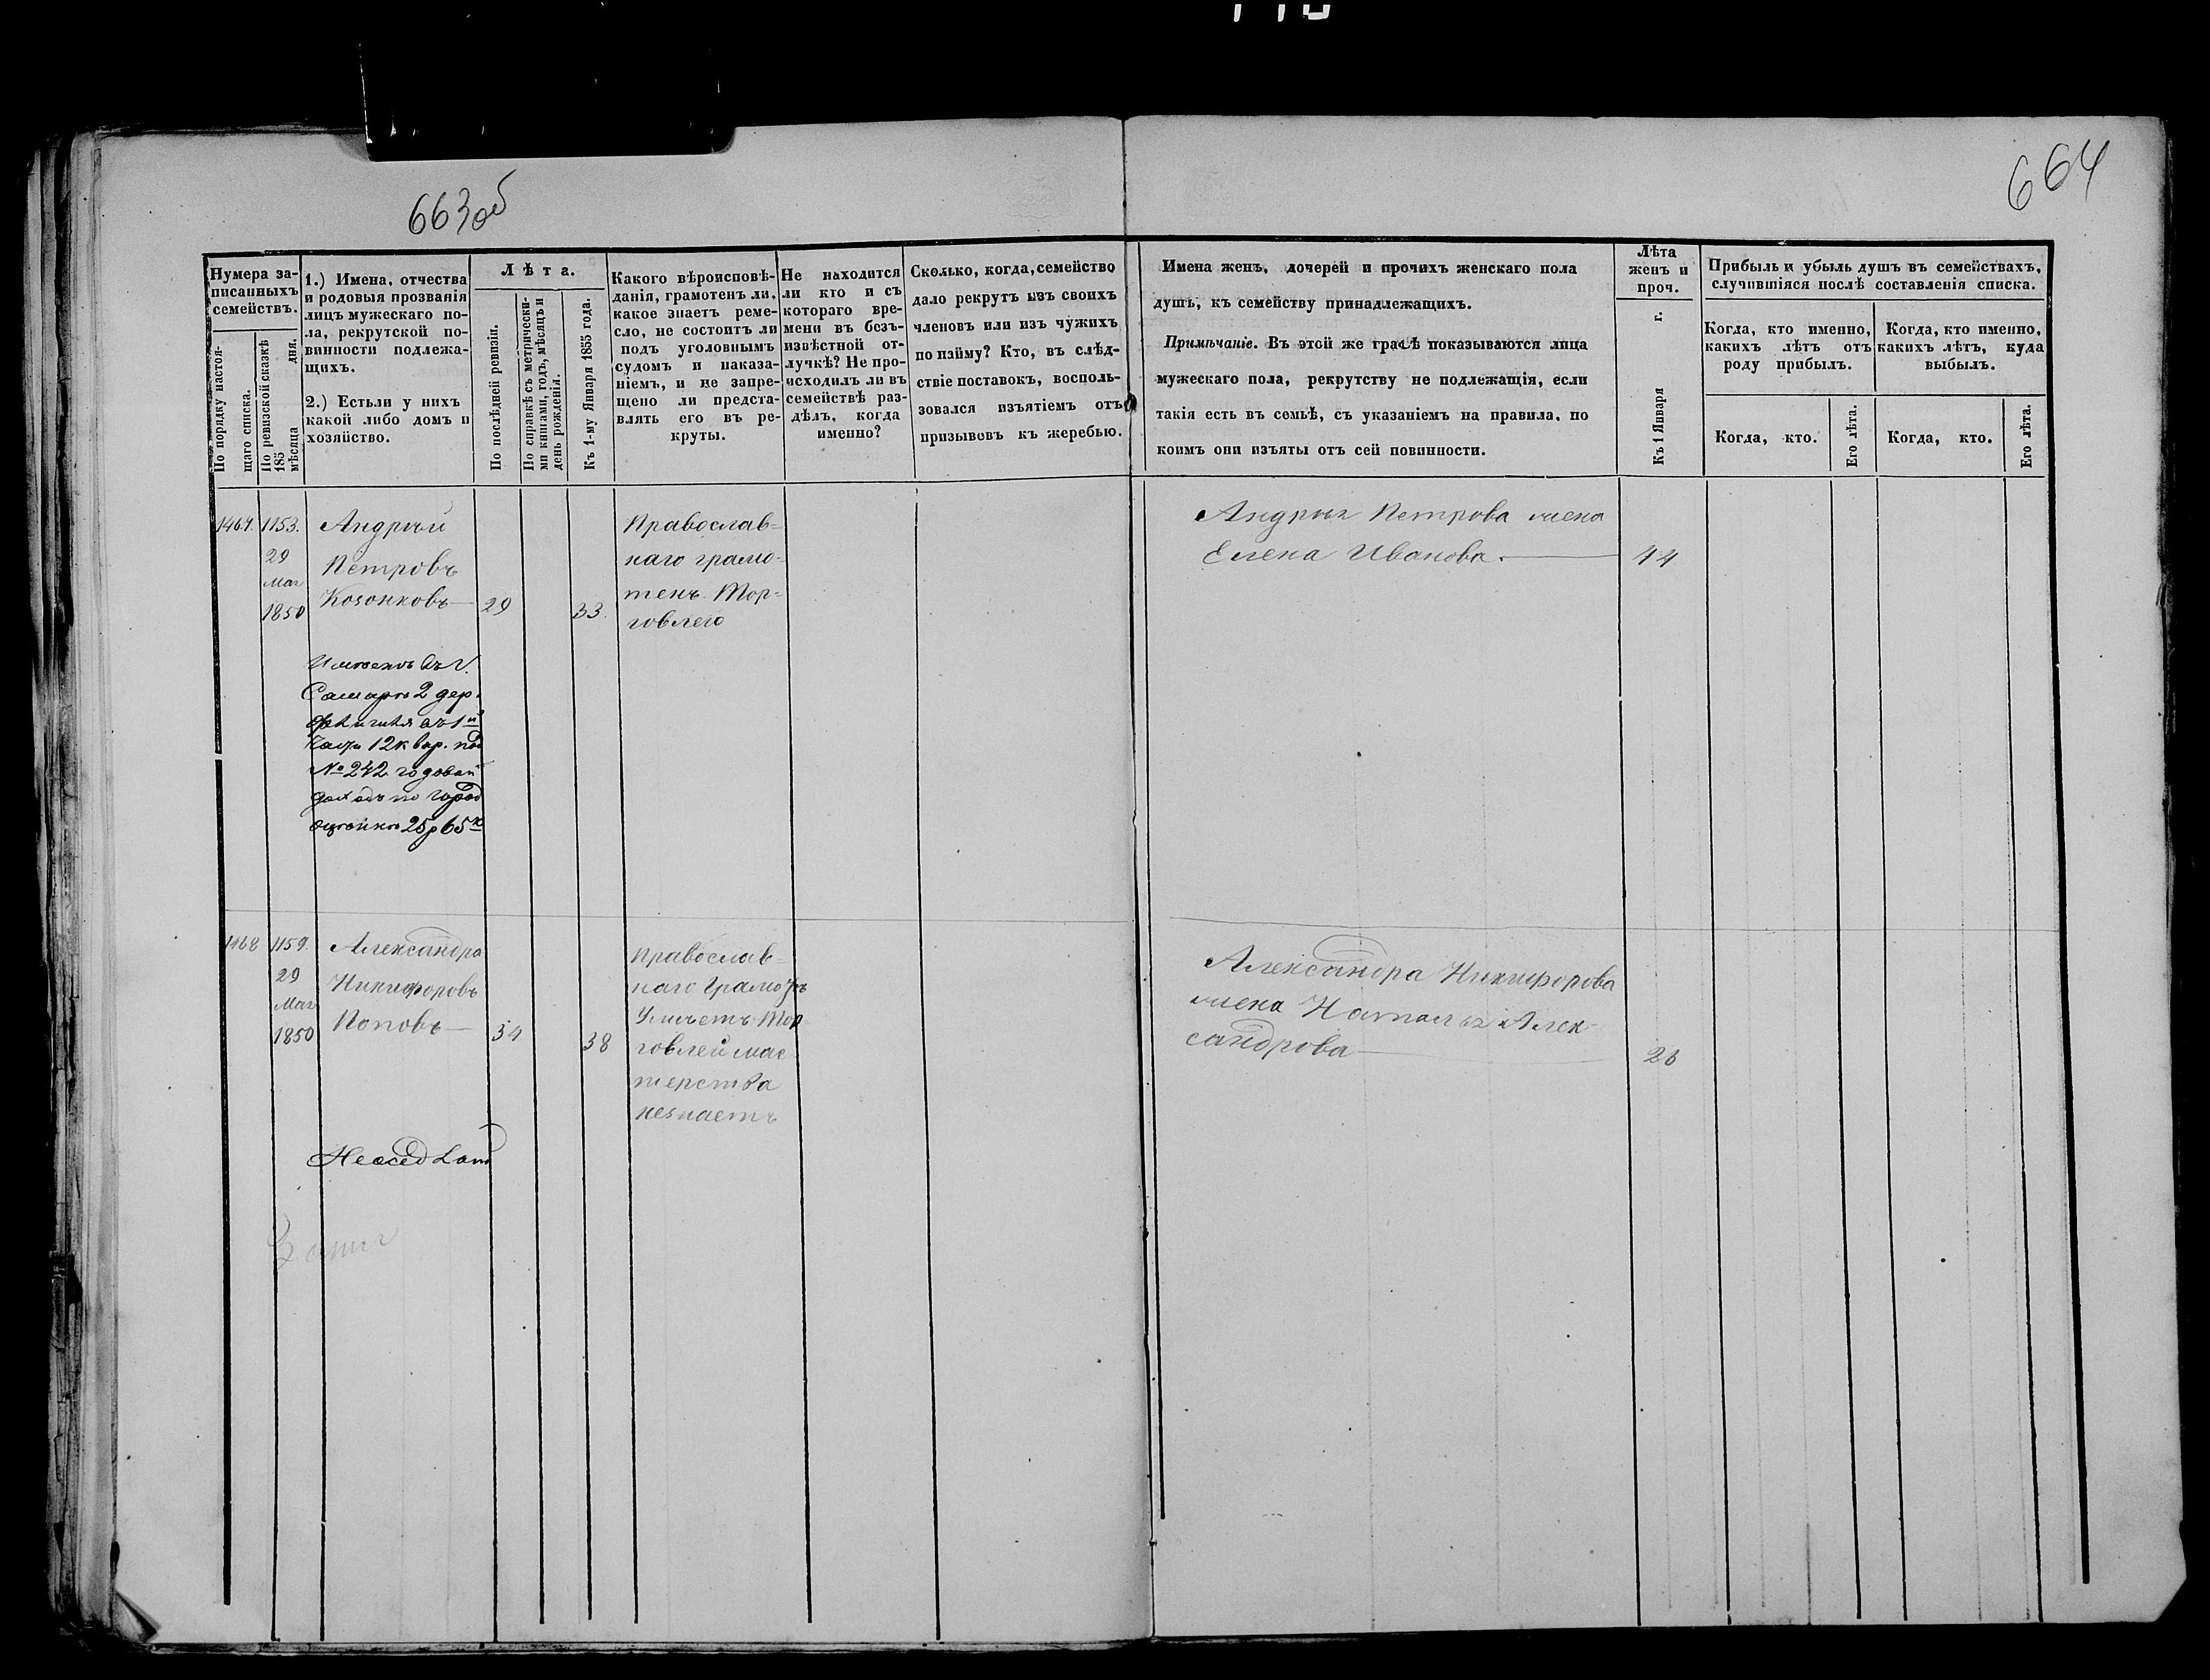 663 об
664
Нумера за-
писанныхъ
семействъ.
По порядку настоя-
щаго списка.
По ревизской сказкѣ
185 дня.
мѣсяца
1.) Имена, отчества
и родовыя прозванія
лицъ мужескаго по-
ла, рекрутской по-
винности подлежа-
щихъ.
2.) Естьли у нихъ
какой либо домъ и
хозяйство.
Лѣта.
По послѣдней ревизіи.
По справкѣ съ метрически-
ми книгами, годъ, мѣсяцъ и
день рожденія.
Къ 1-му Января 1855 года.
Какого вѣроисповѣ-
данія, грамотенъ ли,
какое знаетъ реме-
сло, не состоитъ ли
подъ уголовнымъ
судомъ и наказа-
ніемъ, и не запре-
щено ли предста-
влять его въ ре-
круты.
Не находится
ли кто и съ
котораго вре-
мени въ безъ-
извѣстной от-
лучкѣ? Не про-
исходилъ ли въ
семействѣ раз-
дѣлъ, когда
именно?
Сколько, когда, семейство
дало рекрутъ изъ своихъ
членовъ или изъ чужихъ
по найму? Кто, въ слѣд-
ствіе поставокъ, восполь-
зовался изъятіемъ отъ
призывовъ къ жеребью.
Имена женъ, дочерей и прочихъ женскаго пола
душъ, къ семейству принадлежащихъ.
Примѣчаніе. Въ этой же графѣ показываются лица
мужескаго пола, рекрутству не подлежащія, если
такія есть въ семьѣ, съ указаніемъ на правила, по
коимъ они изъяты отъ сей повинности.
Лѣта
женъ и
проч.
Къ 1 Января г.
Прибыль и убыль душъ въ семействахъ,
случившіяся послѣ составленія списка.
Когда, кто именно,
какихъ лѣтъ отъ
роду прибылъ.
Когда, кто именно,
какихъ лѣтъ, куда
выбылъ.
Когда, кто.
Его лѣта.
Когда, кто.
Его лѣта.
1153.
29
Мая
1850
Андрѣй
Петровъ
Козонковъ
29
33.
Православ-
наго грамо-
тенъ. Тор-
говлею
Андрѣя Петрова жена
Елена Иванова.
44
въ г.
Самарѣ 2 дер.
въ 1й
части 12 квар. под
№ 242 годовой
доходъ по город
оцѣнкѣ 25 р 65 к
1168
1159.
29
Мая
1850
Александра
Никифоровъ
Поповъ
34
38
Православ-
наго Грамотѣ
Умѣетъ Тор
говлей мас
терства
незнаетъ
Александра Никифорова
жена Наталья Алек-
сандрова
26
Неосѣдлой